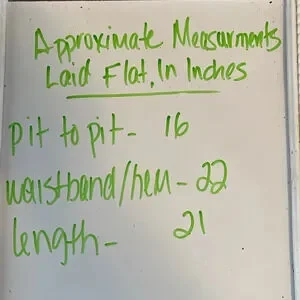 Approximate Measurments
Laid Flat, In Inches
pit to pit- 16
waistband/hem- 22
length- 21